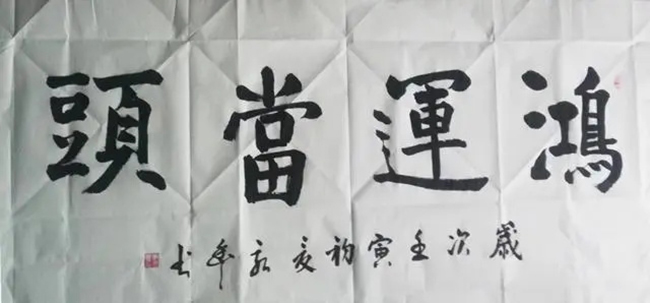 鴻運當頭
歲次壬寅初夏年书